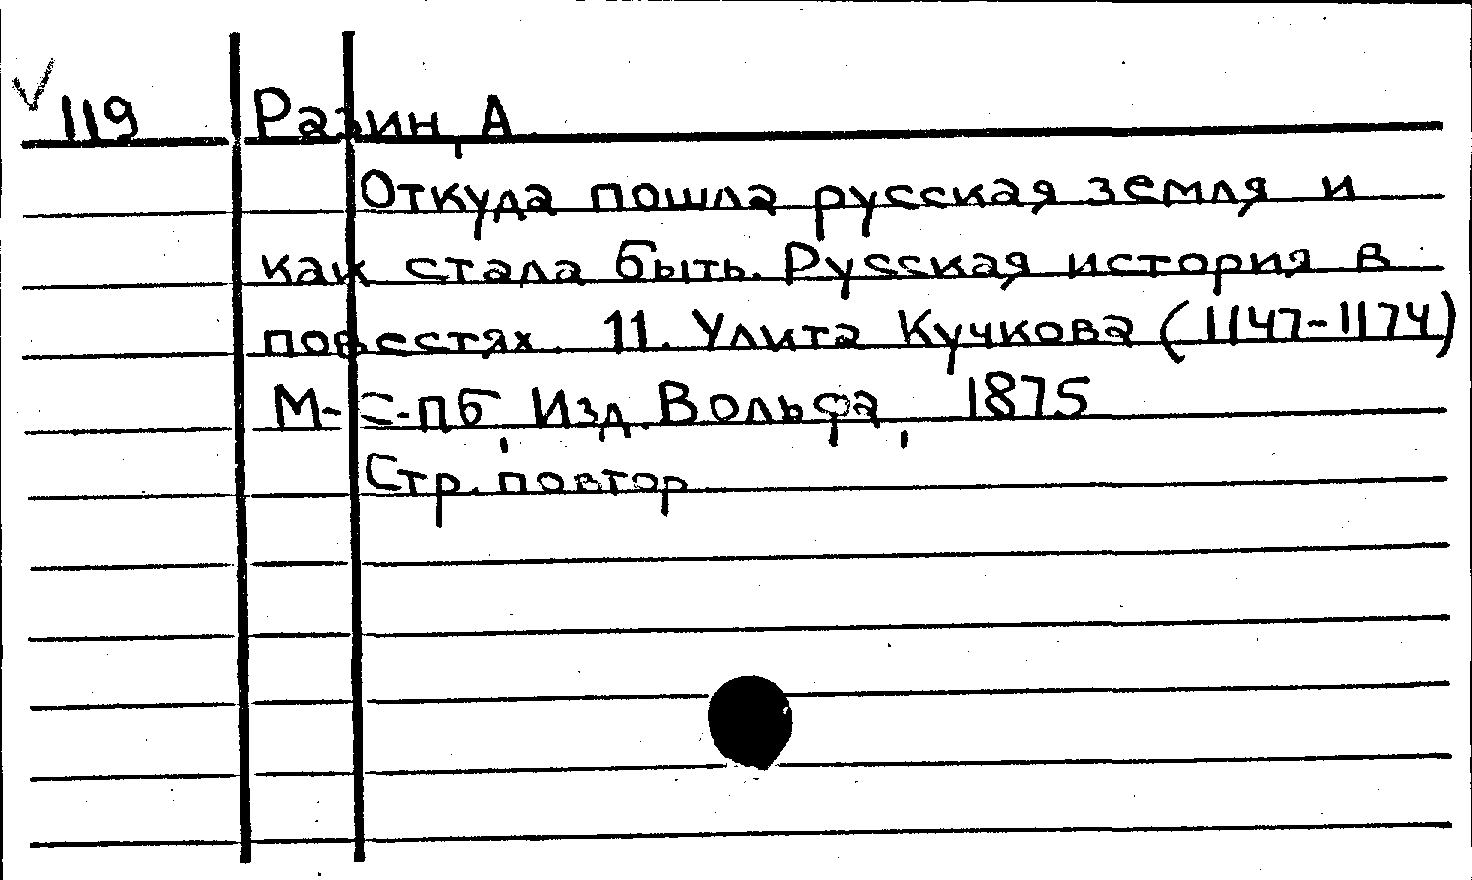 ✓ 119 Разин, А.
Откуда пошла русская земля и
как стала быть. Русская история в
повестях. 11. Улита Кучкова (1147-1174)
М-С-Пб, Изд. Вольфа, 1875
Стр. повтор.